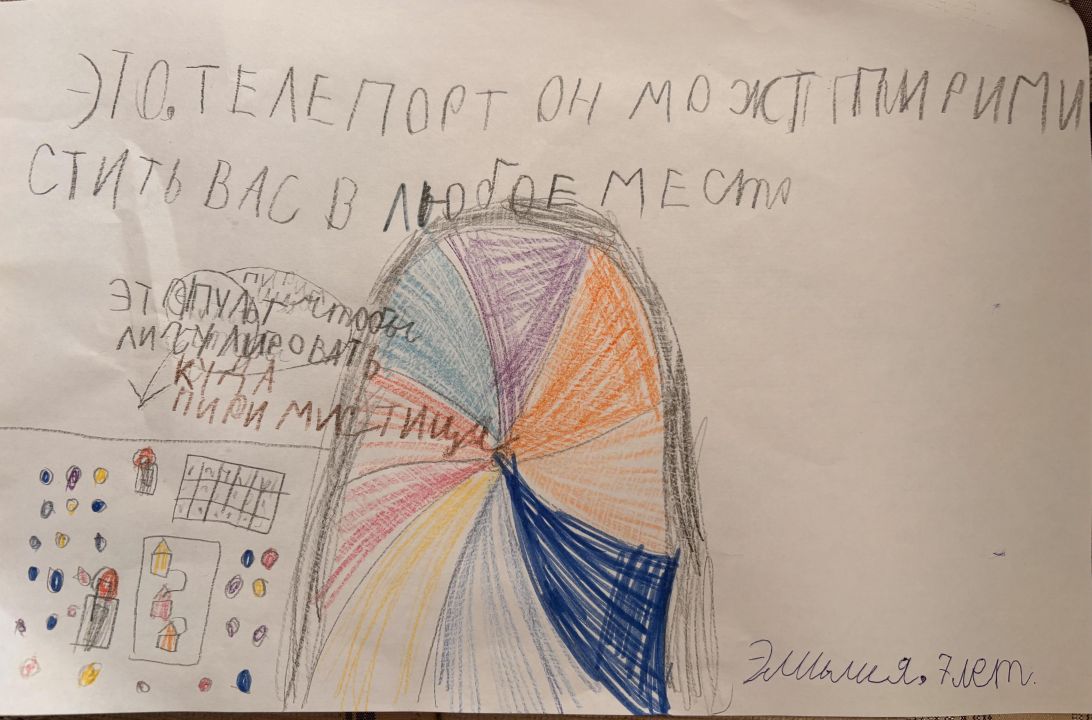 ЭТО. ТЕЛЕПОРТ ОН МОЖТ ПИРИМИ
СТИТЬ ВАС В ЛЮБОЕ МЕСТО
ЭТО ПУЛЬТ чтобы
ЛИГУЛИРОВАТЬ
КУДА
ПИРИМИСТИЦЦА
Эмилия. 7 лет.